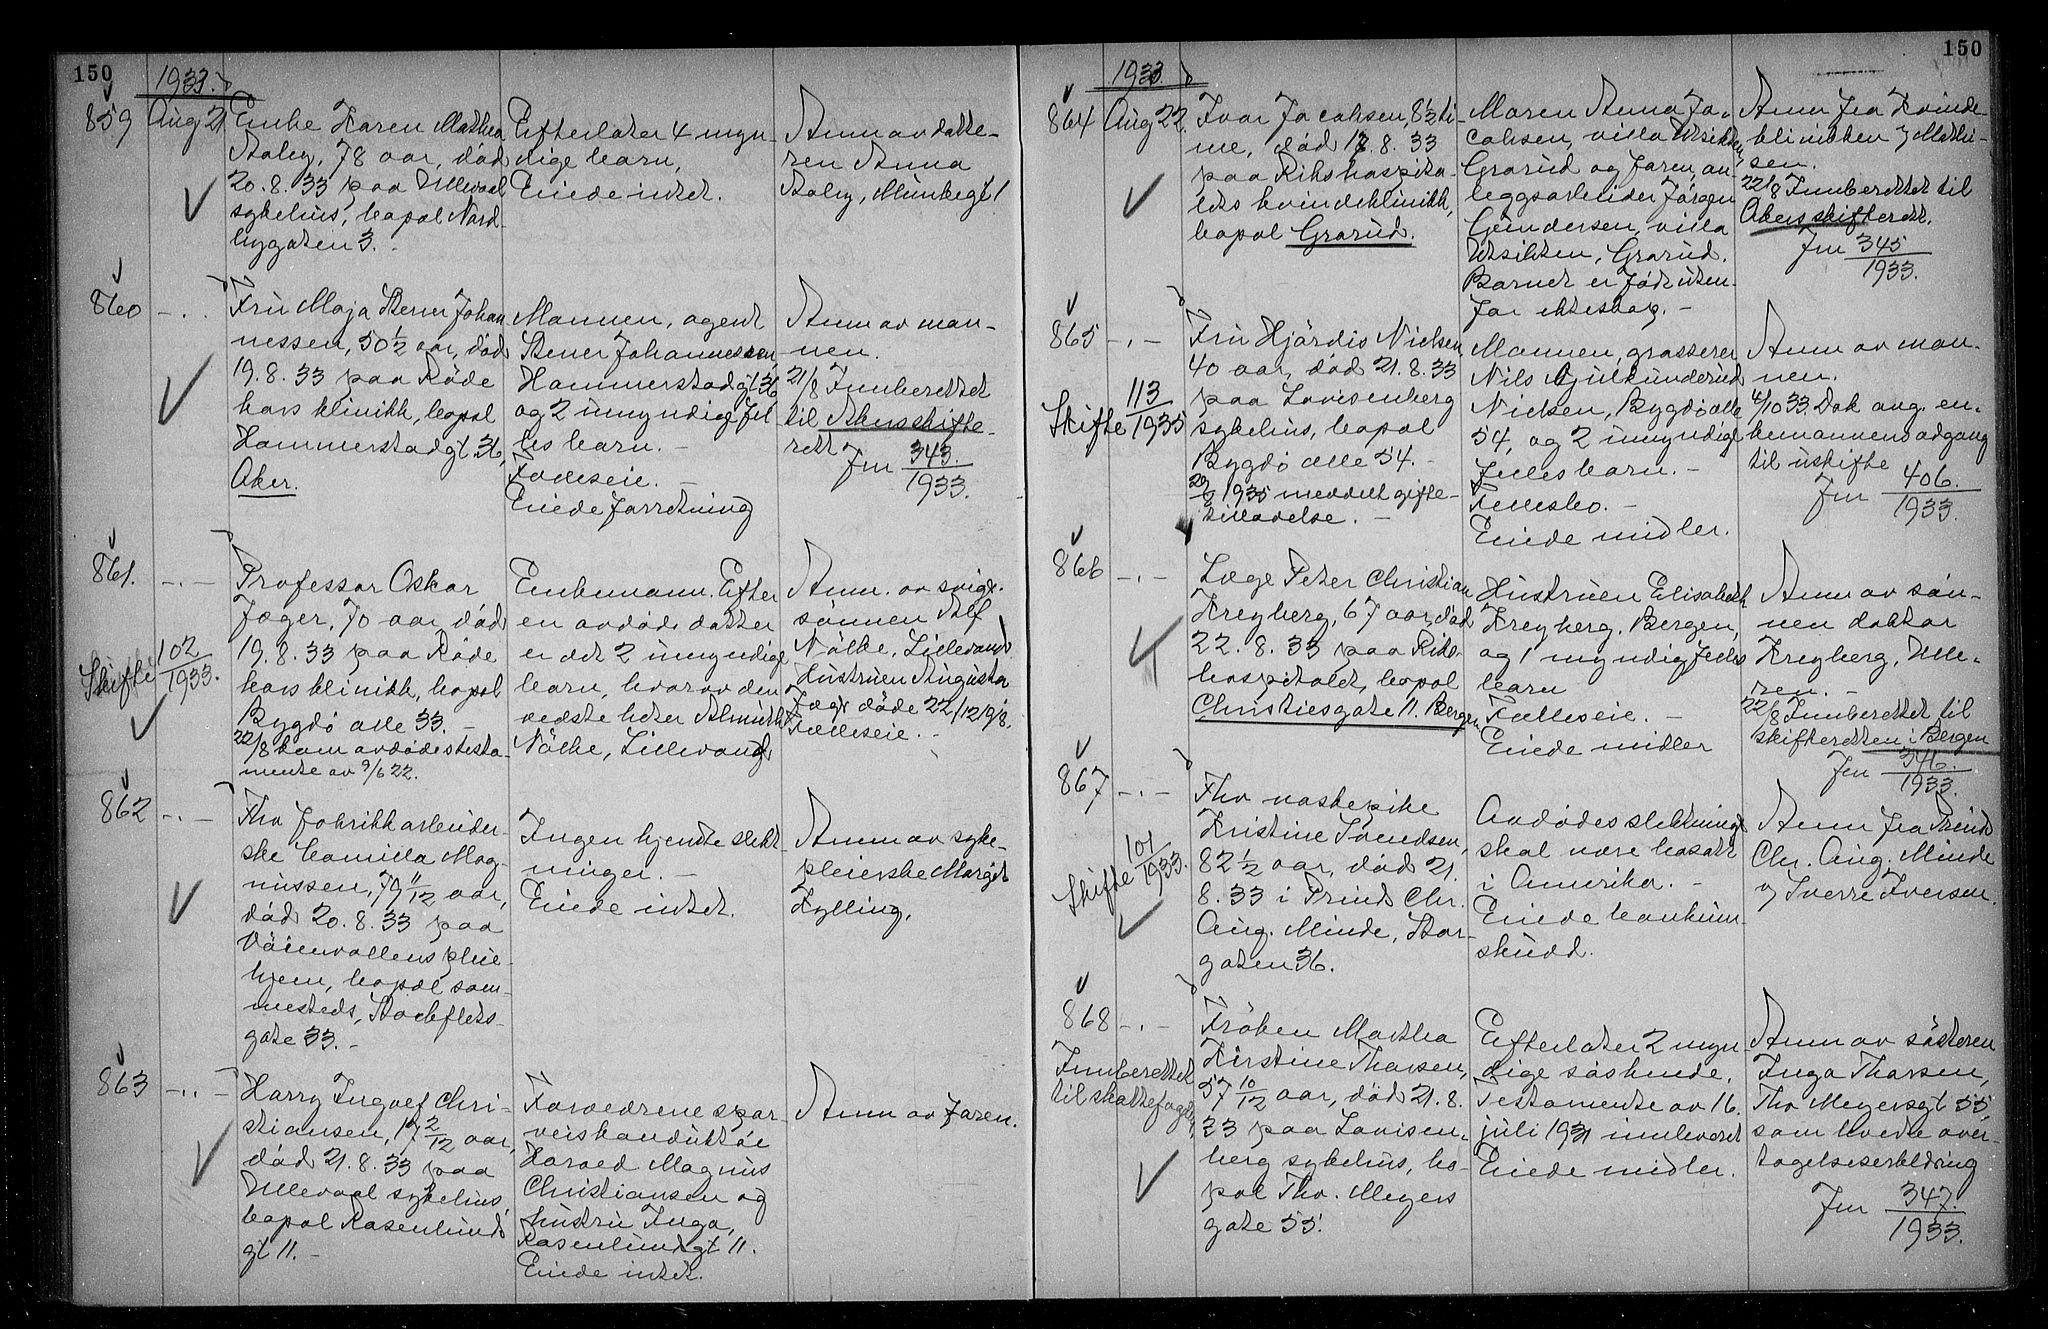 150
1933.
859
Aug 21
Enke Karen Mathea
Aaby, 78 aar, död
20.8.33 paa Ullevaal
sykehus, bopæl Nord-
bygaten 3.
Efterlater 4 myn-
dige barn.
Eiede intet.
Anm av datte-
ren Anna
Aaby, Munkegt 1
860
Fru Maja Stener Johan
nessen, 50 1/2 aar, död
19.8.33 paa Röde
kors klinikk, bopæl
Hammerstadgt. 36,
Aker.
Mannen, agent
Stener Johannessen,
Hammerstadgt 36
og 2 umyndige fel
les barn. -
Fælleseie. -
Eiede forretning
Anm av man-
nen.
21/8 Innberettet
til Akers skifte-
rett
Jnr 343.
1933.
861.
Skifte 102
1933.
Professor Oskar
Jæger, 70 aar, död
19.8.33 paa Röde
kors klinikk, bopæl
Bygdö alle 33. -
22/8 kom avdödes testa-
mente av 9/6 22.
Enkemann. Efter
en avdöd datter
er det 2 umyndige
barn, hvorav den
eldste heter Almuth
Nölke, Lillevand
Anm. av svige-
sönnen Alf
Nölke, Lillevand
Hustruen Augusta
Jæger döde 22/12 1918.
Fælleseie. -
862
Fhv fabrikkarbeider-
ske Camilla Mag-
nussen, 79 11/12 aar,
död 20.8.33 paa
Vöienvollens pleie-
hjem, bopæl sam-
mesteds, Stockfleths-
gate 33. -
Ingen kjendte slekt-
ninger. -
Eiede intet.
Anm av syke-
pleierske Margit
Kylling.
863
Harry Ingolf Chri-
stiansen, 17 2/12 aar,
död 21.8.33 paa
Ullevaal sykehus,
bopæl Rosenlunds
gt 11. -
Forældrene spor
veiskonduktör
Harald Magnus
Christiansen og
hustru Inga,
Rosenlundgt 11.
Eiede intet.
Anm av faren.
150
1933
864
Aug 22.
Ivar Jacobsen, 8 1/2 ti-
me, död 18.8.33
paa Rikshospita-
lets kvindeklinikk,
bopæl Grorud.
Maren Anna Ja-
cobsen, villa Utsikten,
Grorud og faren, an-
leggsarbeider Jörgen
Gundersen, villa
Utsikten, Grorud.
Barnet er födt uten-
for ekteskap. -
Anm fra Kvinde-
klinikken v/ Mathi-
sen.
22/8 Innberettet til
Akers skifterett.
Jnr 345
1933.
865
Skifte 113
1935
Fru Hjördis Nielsen,
40 aar, död 21.8.33
paa Lovisenberg
sykehus, bopæl
Bygdö alle 54. -
1935 meddelt gifte-
tilladelse. -
Mannen, grosserer
Nils
Nielsen, Bygdö alle
54, og 2 umyndige
felles barn. -
Fellesbo. -
Eiede midler.
Anm av man-
nen.
4/10 33. Dok ang. en-
kemannens adgang
til uskifte
Jnr 406.
1933.
866
Læge Peter Christian
Kreyberg, 67 aar, död
22.8.33 paa Riks-
hospitalet, bopæl
Christiesgate 11. Bergen,
Hustruen Elisabeth
Kreyberg, Bergen,
og 1 myndig felles
barn
Fælleseie. -
Eiede midler
Anm av sön-
nen doktor
Kreyberg, Ulle-
ren. -
22/8 Innberettet til
skifteretten i Bergen
Jnr 346.
1933.
867
Skifte 101
1933.
Fhv vaskepike
Kristine Svendsen,
82 1/2 aar, död 21.
8.33 i Prinds Chr.
Aug. Minde, Stor-
gaten 36.
Avdödes slektninger
skal være bosatt
i Amerika. -
Eiede bankinn-
skudd.
Anm fra Prinds
Chr. Aug. Minde
v/ Sverre Iversen.
868
Innberettet
til skattefogden,
Fröken Martha
Kirstine Thorsen,
57 10/12 aar, död 21.8.
33 paa Lovisen-
berg sykehus, bo-
pæl Thv. Meyers
gate 55.
Efterlater 2 myn
dige söskende.
Testamente av 16.
juli 1931 innleveret
Eiede midler.
Anm av sösteren
Inga Thorsen,
Thv Meyersgt 55,
som hvede over-
tagelseserklæring
Jnr 347.
1933.